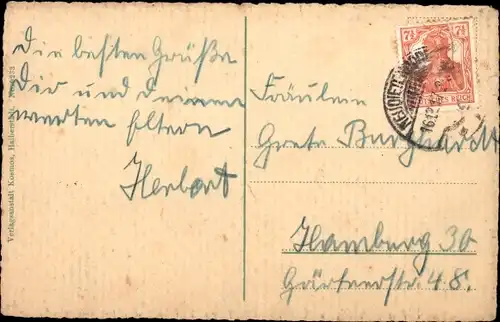 Die besten Grüße
Dir und Deinen
werten Eltern
Herbert
Fräulein
Grete Burghardt
Hamburg 30
Gärtnerstr. 48.
Verlagsanstalt Kosmos,
7½ 7½
REICH